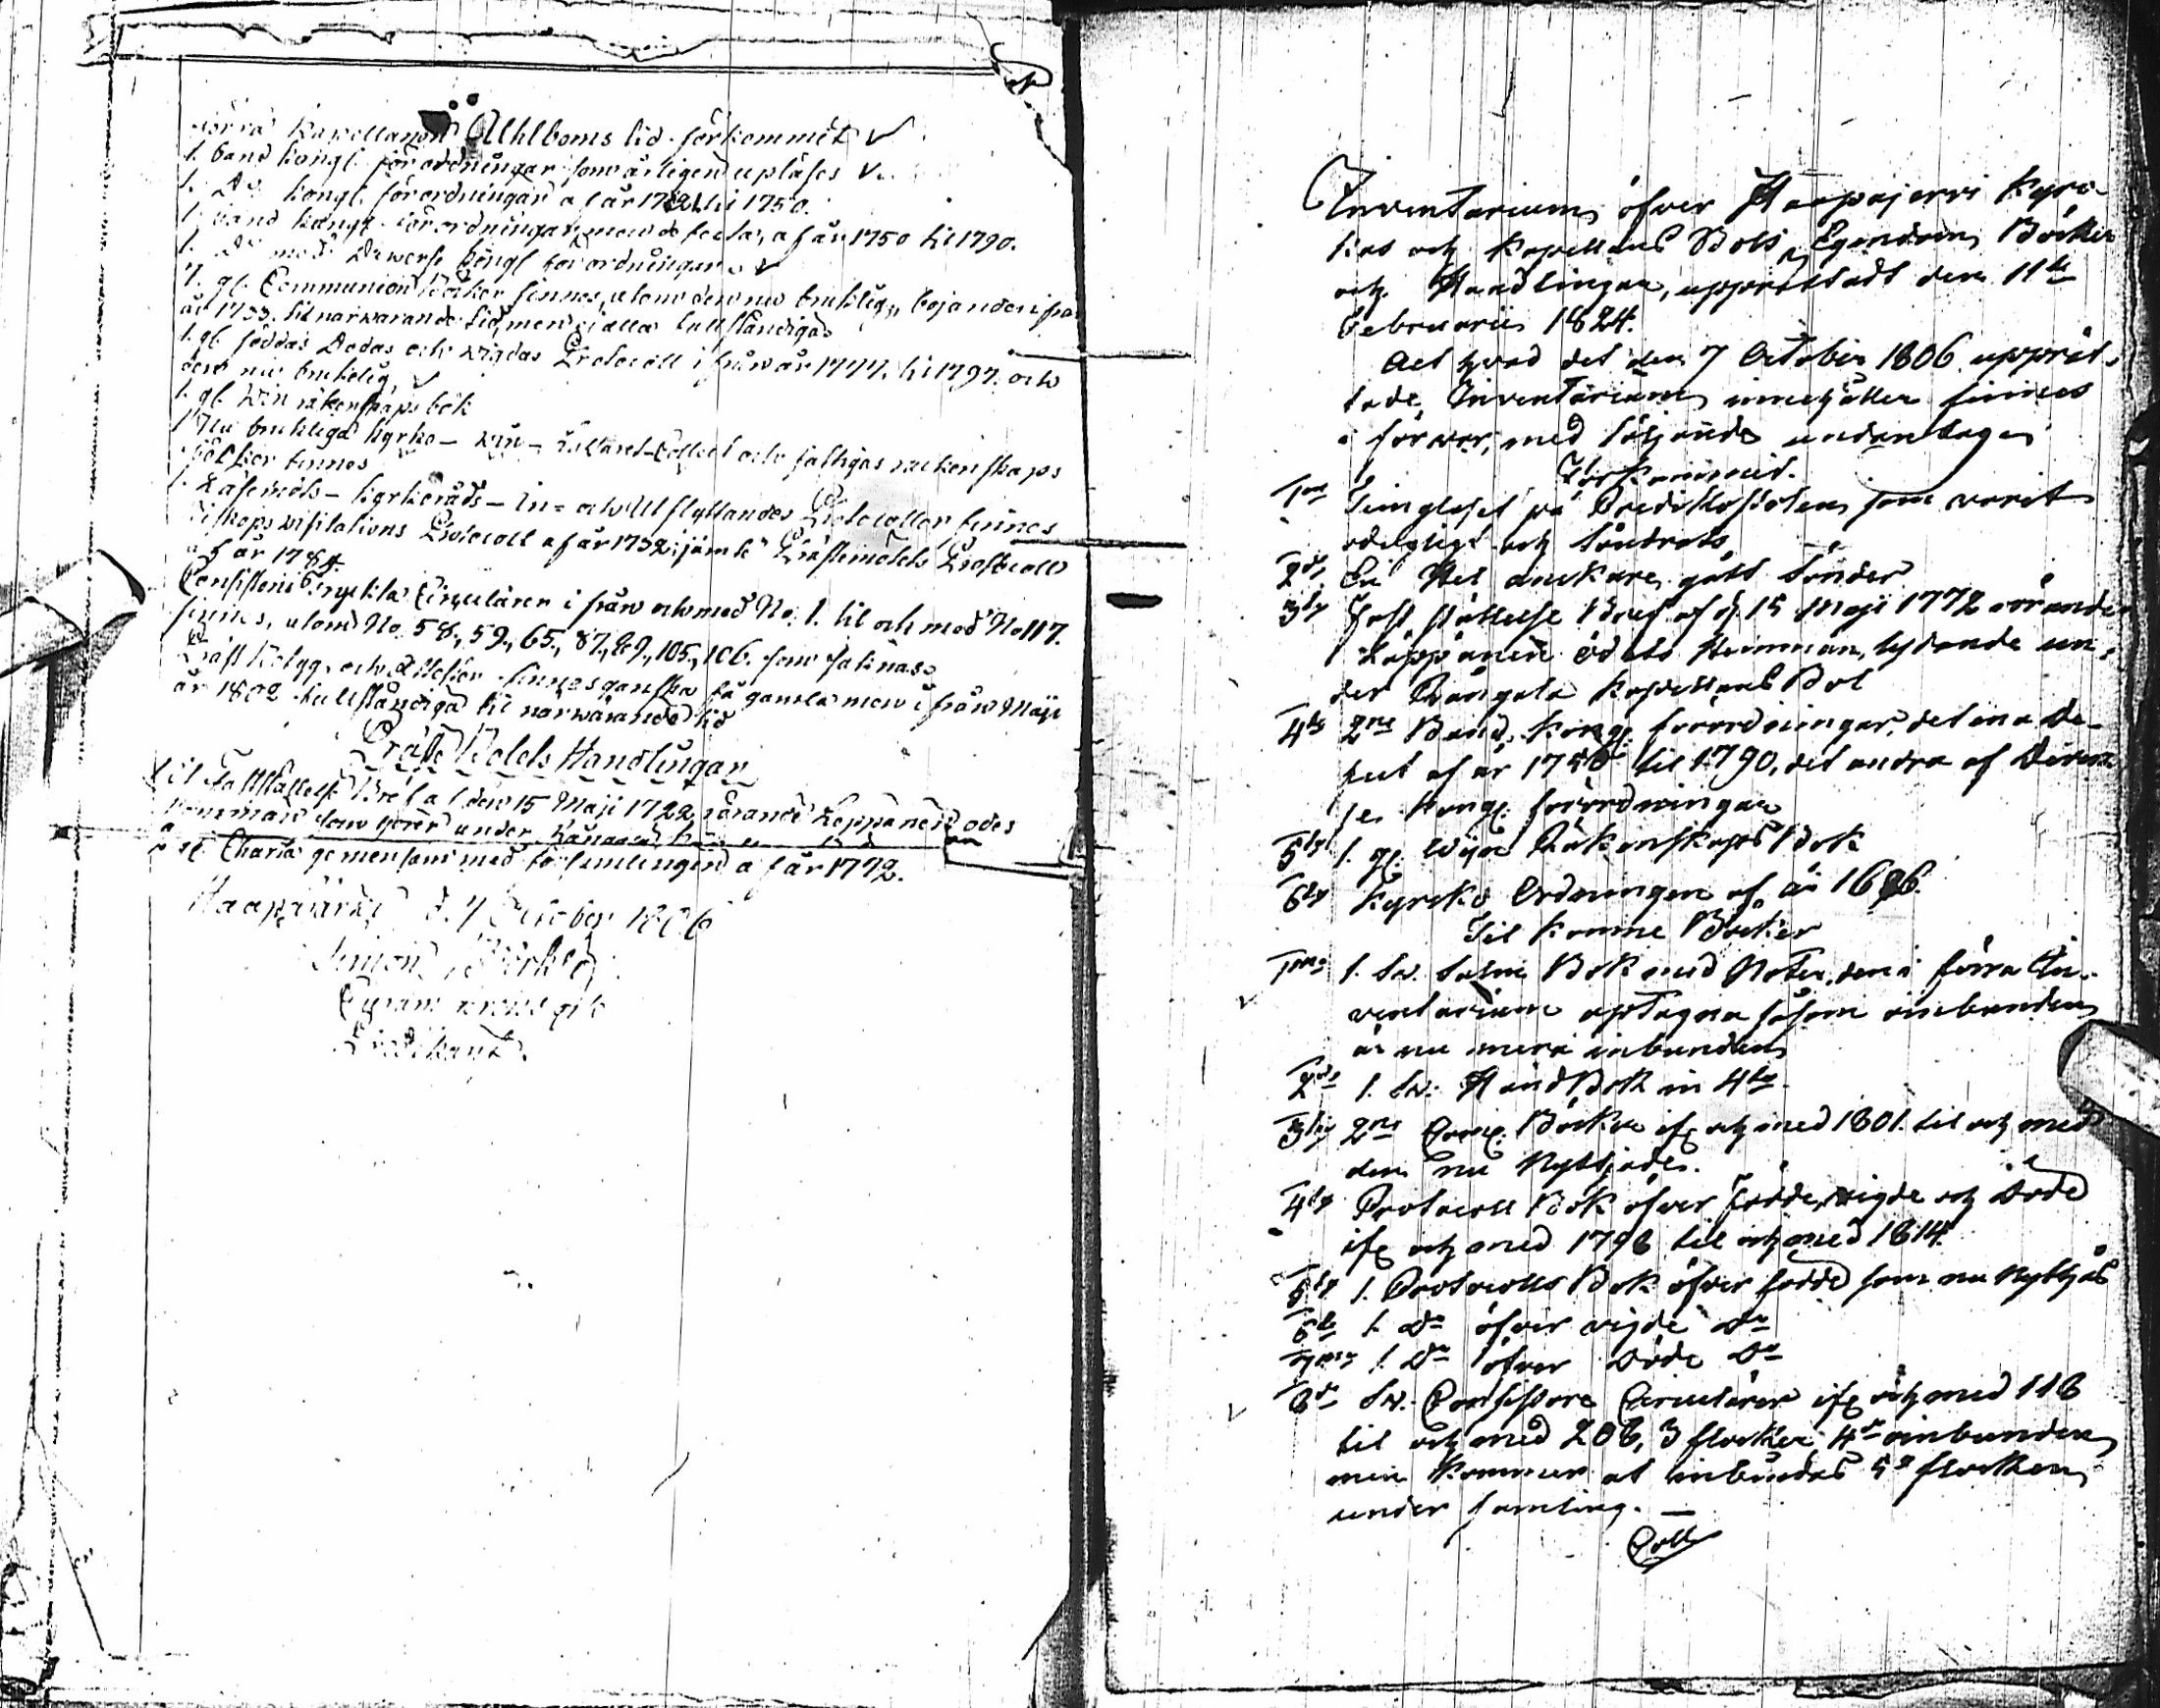 förra Kapellanen Ahlboms tid förkommit
1. band kongl. förordningar som årligen upläses
1. Do kongl. förordningar af år 1721 til 1750.
1. band kongl. förordningar med defecta, af år 1750 til 1790.
1. Do med Diverse kongl förordningar
1. gl. Communion Böcker finnes, utom den nu brukelig, börjandes ifrån
år 1733. til närwarande tid, men ej alla fullständiga
1. gl. föddas Dödas och wigdas Protocoll ifrån år 1777. til 1797. och
den nu brukelig,
1. gl. Win räkenskaps bok
Nu brukliga kyrko- win- Collect och fattigas räckenskaps
böcker finnes
1. Läsemöts- kyrkoråds- in- och Utflyttandes Protocoller finnes
Biskops visitations Protocoll af år 1732, jämte Prästemötets Protocoll
af år 1784.
Consistorii tryckta Circulairer ifrån och med No. 1. til och med No 117.
finnes, utom No. 58., 59., 65., 87., 89., 105., 106. som saknas.
finnes ganska få gamla men ifrån Maji
år 1802 fullständiga til närwarande tid
Präste Bolets Handlingar
Fastställelse Bref af den 15 Maji 1722, rörande Leppänen ödes
hemman som hörer under
Charta gemensam med församlingen af år 1772.
Haapajärvi d. 7 October 1806
Simon
Predikant.
Inventarium öfver Haapajervi Kyro
kas och Kapellans Bols Egendom Böcker
och Handlingar, upprättadt den 11te
Februarii 1824.
Alt hvad det den 7 October 1806 upprät-
tade Inventarium innehåller finnes
i förvar, med följande undantagen
Förkommit.
1mo Timglaset på Predikostolen som varit
odugligt och söndrats
2do En Hel anckare gått sönder
3tio Fast ställelse Bref af d. 15 Maji 1772 rörande
Läppänen ödets Hemman, lydande un-
der Kångala Kapellans Bol
4to 2ne Band Kongl. förordningar, det ena De-
fect af år 1750 til 1790, det andra af Diver
se Kongl. förordningar
5to 1. gl. Wijn Räkenskaps Bok
6to Kyrko Ordningen af år 1686.
Til komne Böcker
1mo 1. Sv. Salm Bok med Noter, den i förra In-
ventarium uptagna såsom oinbunden
är nu mera inbunden
2do 1. Sv. Hand Bok in 4to
3tio 2ne Com. Böcker ifr. och med 1801. til och med
den nu Nyttjade.
4to Protocoll Bok öfver födde, vigde och Döde
ifr. och med 1798 til och med 1814.
5to 1. Protocolls Bok öfver födde som nu Nyttjas
6to 1. Do öfver vigde Do
7mo 1 Do öfver Döde Do
8vo Sv. Consistorii Circulairer ifr. och med 118
til och med 208, 3 flocker, 4de oinbunden
men kommer at inbindas 5te flocken
under samling.